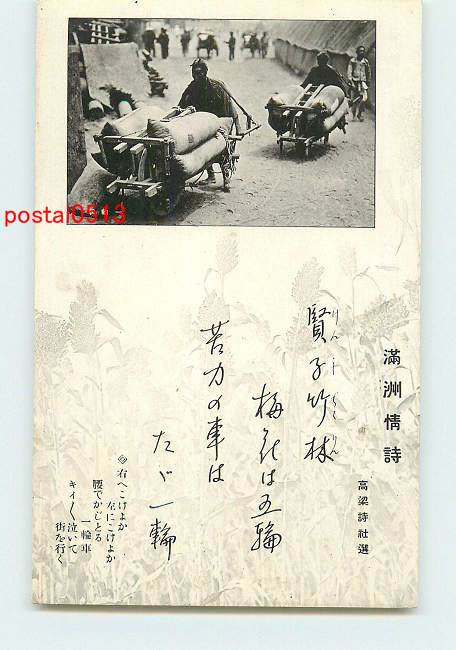 postal0513
滿洲情詩
高梁詩社選
賢子竹林
梅花は五輪
苦力の車は
たゞ一輪
◎右へこけよか
左にこけよか
腰でかじとる
一輪車
キィ〳〵泣いて
街を行く